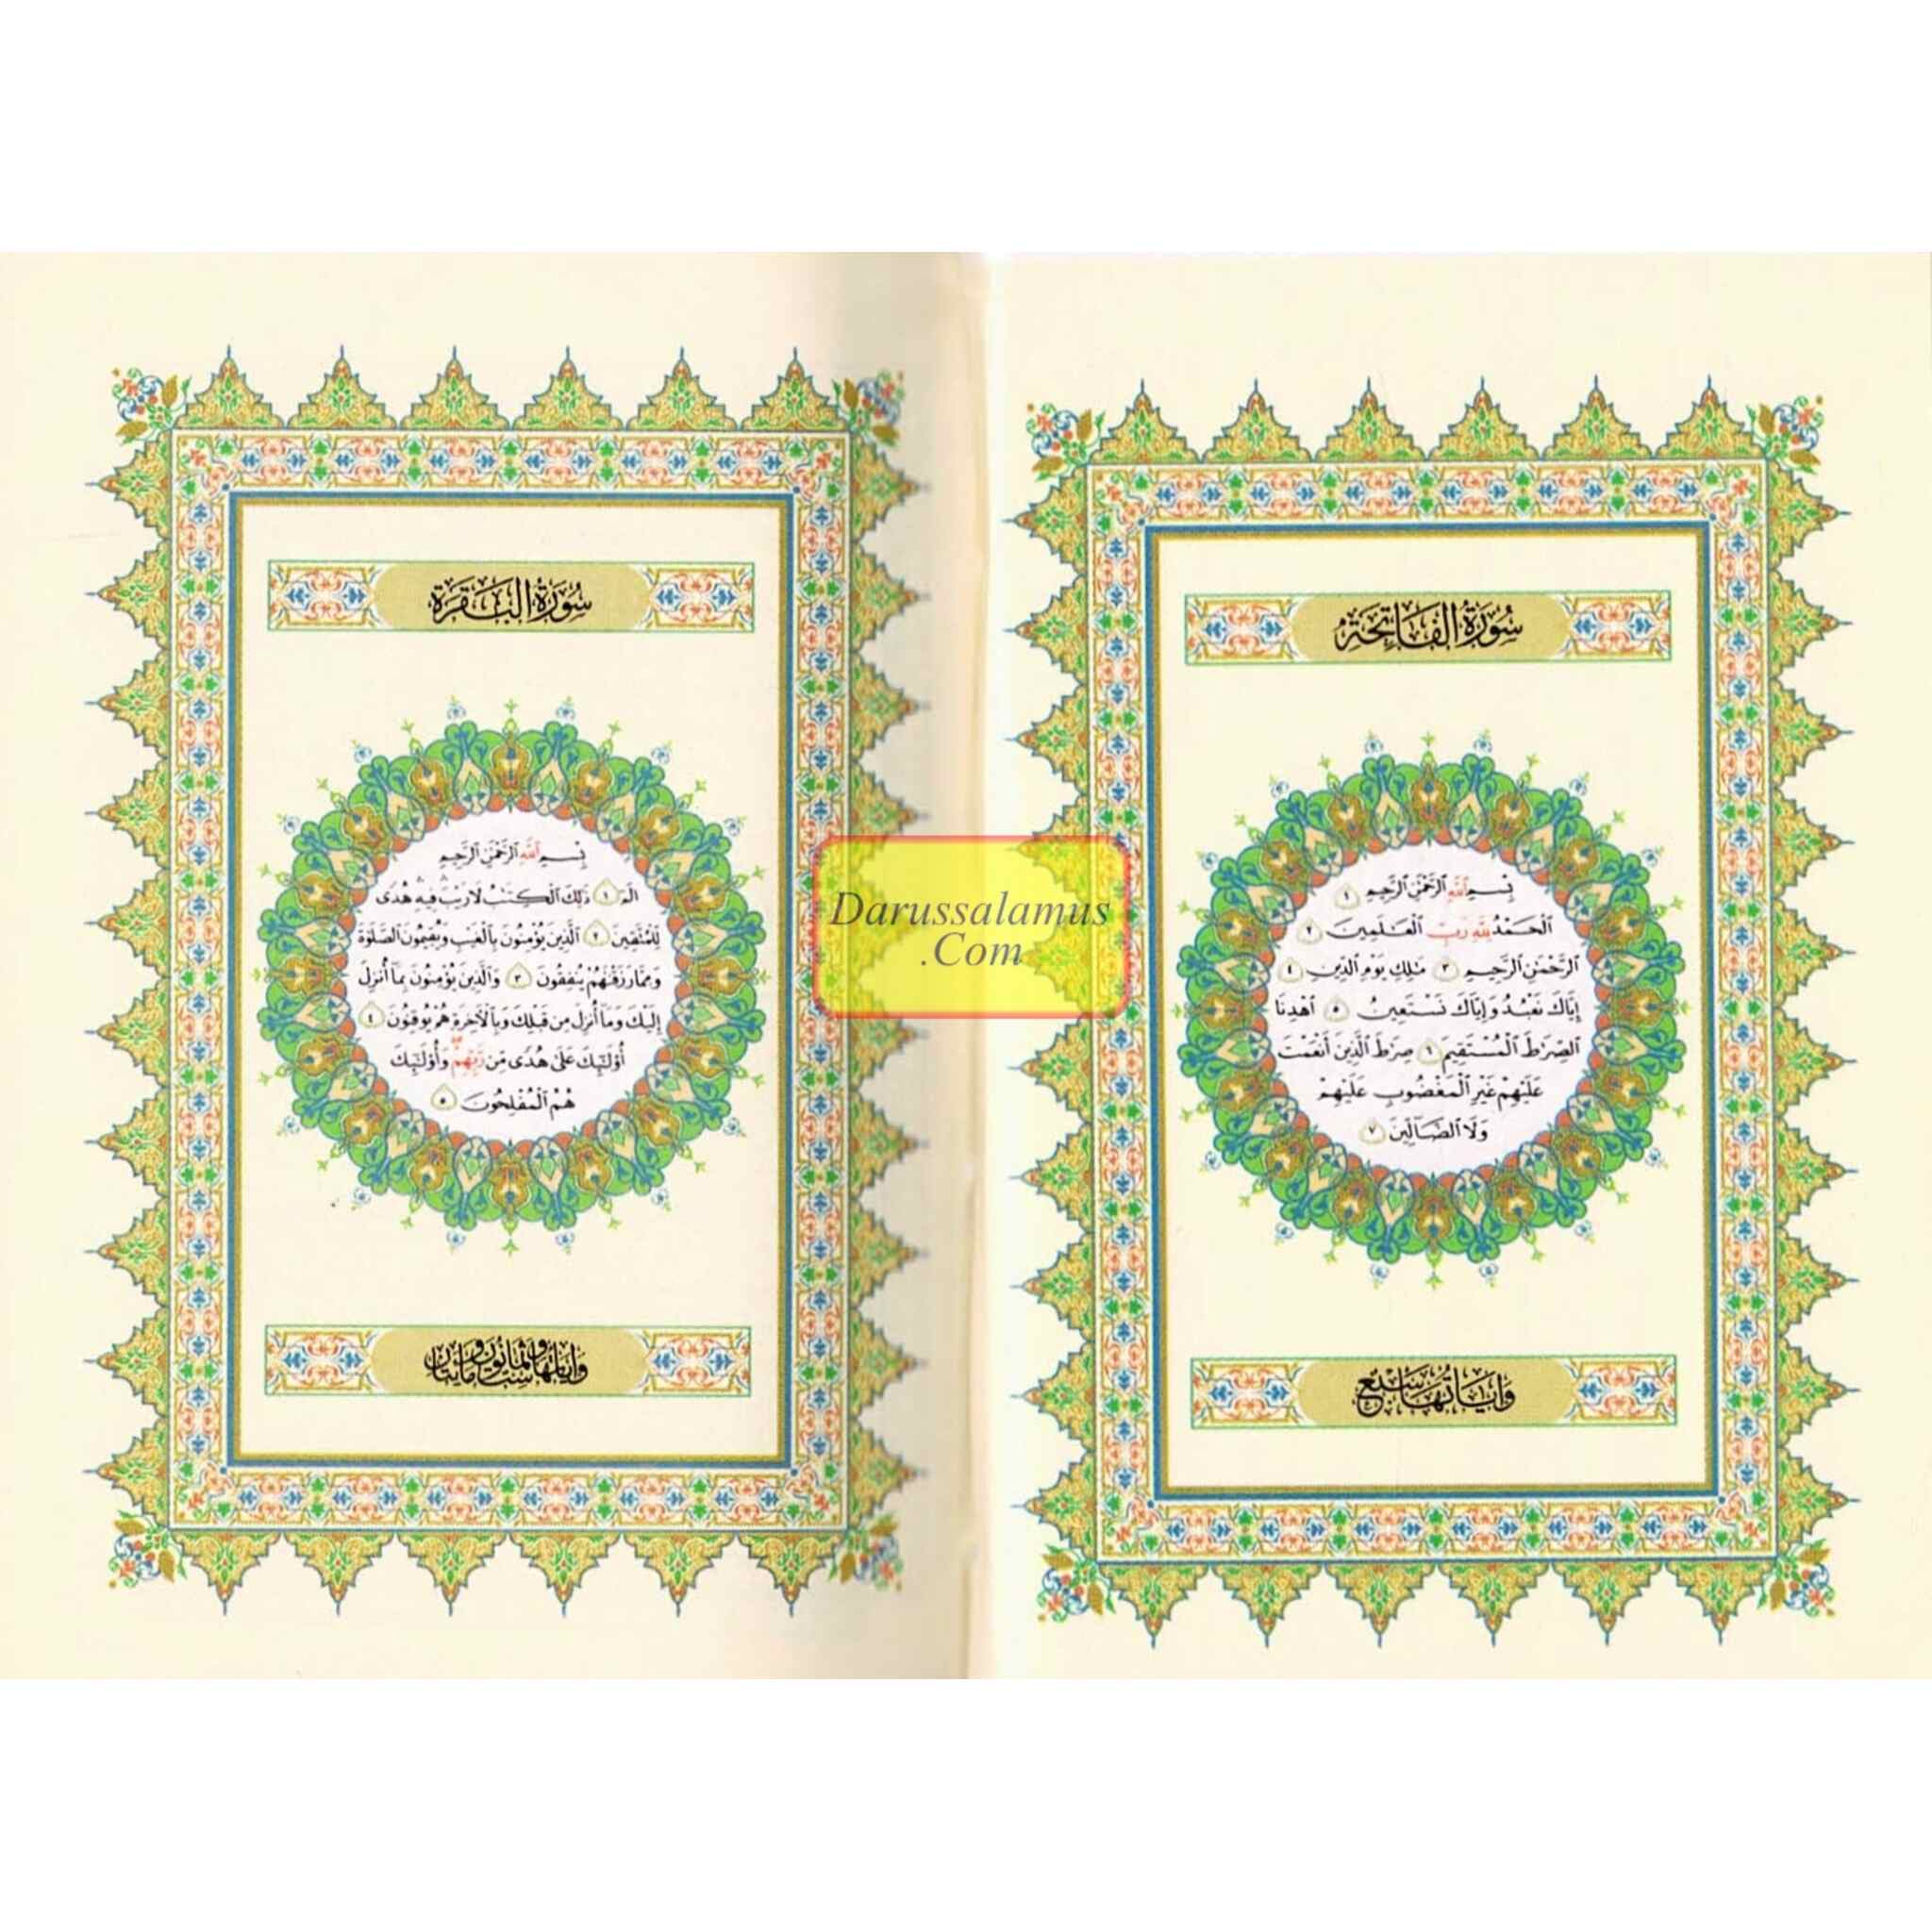 سُورَةُ الْفَاتِحَةِ
بِسْمِ ٱللَّهِ ٱلرَّحْمَٰنِ ٱلرَّحِيمِ ١
ٱلْحَمْدُ لِلَّهِ رَبِّ ٱلْعَٰلَمِينَ ٢
ٱلرَّحْمَٰنِ ٱلرَّحِيمِ ٣ مَٰلِكِ يَوْمِ ٱلدِّينِ ٤
إِيَّاكَ نَعْبُدُ وَإِيَّاكَ نَسْتَعِينُ ٥ ٱهْدِنَا
ٱلصِّرَٰطَ ٱلْمُسْتَقِيمَ ٦ صِرَٰطَ ٱلَّذِينَ أَنْعَمْتَ
عَلَيْهِمْ غَيْرِ ٱلْمَغْضُوبِ عَلَيْهِمْ
وَلَا ٱلضَّآلِّينَ ٧
وَآيَاتُهَا سَبْعٌ
سُورَةُ الْبَقَرَةِ
بِسْمِ ٱللَّهِ ٱلرَّحْمَٰنِ ٱلرَّحِيمِ
الٓمٓ ١ ذَٰلِكَ ٱلْكِتَٰبُ لَا رَيْبَ فِيهِ هُدًى
لِّلْمُتَّقِينَ ٢ ٱلَّذِينَ يُؤْمِنُونَ بِٱلْغَيْبِ وَيُقِيمُونَ ٱلصَّلَوٰةَ
وَمِمَّا رَزَقْنَٰهُمْ يُنفِقُونَ ٣ وَٱلَّذِينَ يُؤْمِنُونَ بِمَآ أُنزِلَ
إِلَيْكَ وَمَآ أُنزِلَ مِن قَبْلِكَ وَبِٱلْءَاخِرَةِ هُمْ يُوقِنُونَ ٤
أُو۟لَٰٓئِكَ عَلَىٰ هُدًى مِّن رَّبِّهِمْ وَأُو۟لَٰٓئِكَ
هُمُ ٱلْمُفْلِحُونَ ٥
وَآيَاتُهَا سِتٌّ وَثَمَانُونَ وَمِائَتَانِ
Darussalamus
.Com